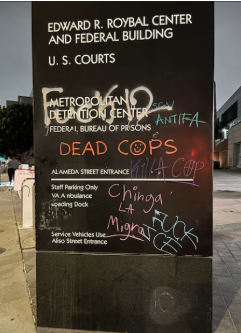 EDWARD R. ROYBAL CENTER
AND FEDERAL BUILDING
U. S. COURTS
METROPOLITAN
DETENTION CENTER
FEDERAL BUREAU OF PRISONS
ANTIFA
DEAD COPS
KILL A COP
ALAMEDA STREET ENTRANCE
Staff Parking Only
VA Ambulance
Loading Dock
Chinga
LA
Migra
FUCK
Service Vehicles Use
Aliso Street Entrance